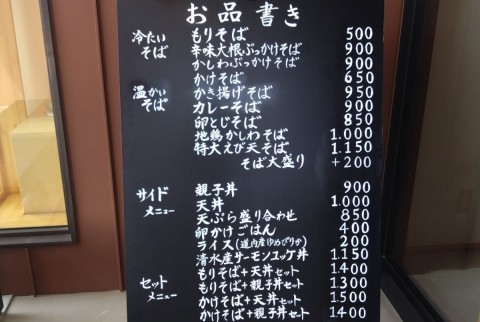 お品書き
冷たいそば もりそば 500
辛味大根ぶっかけそば 900
かしわぶっかけそば 900
温かいそば かけそば 650
かき揚げそば 950
カレーそば 900
卵とじそば 850
地鶏かしわそば 1.000
特大えび天そば 1.150
そば大盛り +200
サイドメニュー 親子丼 900
天丼 1.000
天ぷら盛り合わせ 850
卵かけごはん 400
ライス(道内産ゆめぴりか) 200
清水産サーモンユッケ丼 1.150
セットメニュー もりそば+天丼セット 1400
もりそば+親子丼セット 1300
かけそば+天丼セット 1500
かけそば+親子丼セット 1400